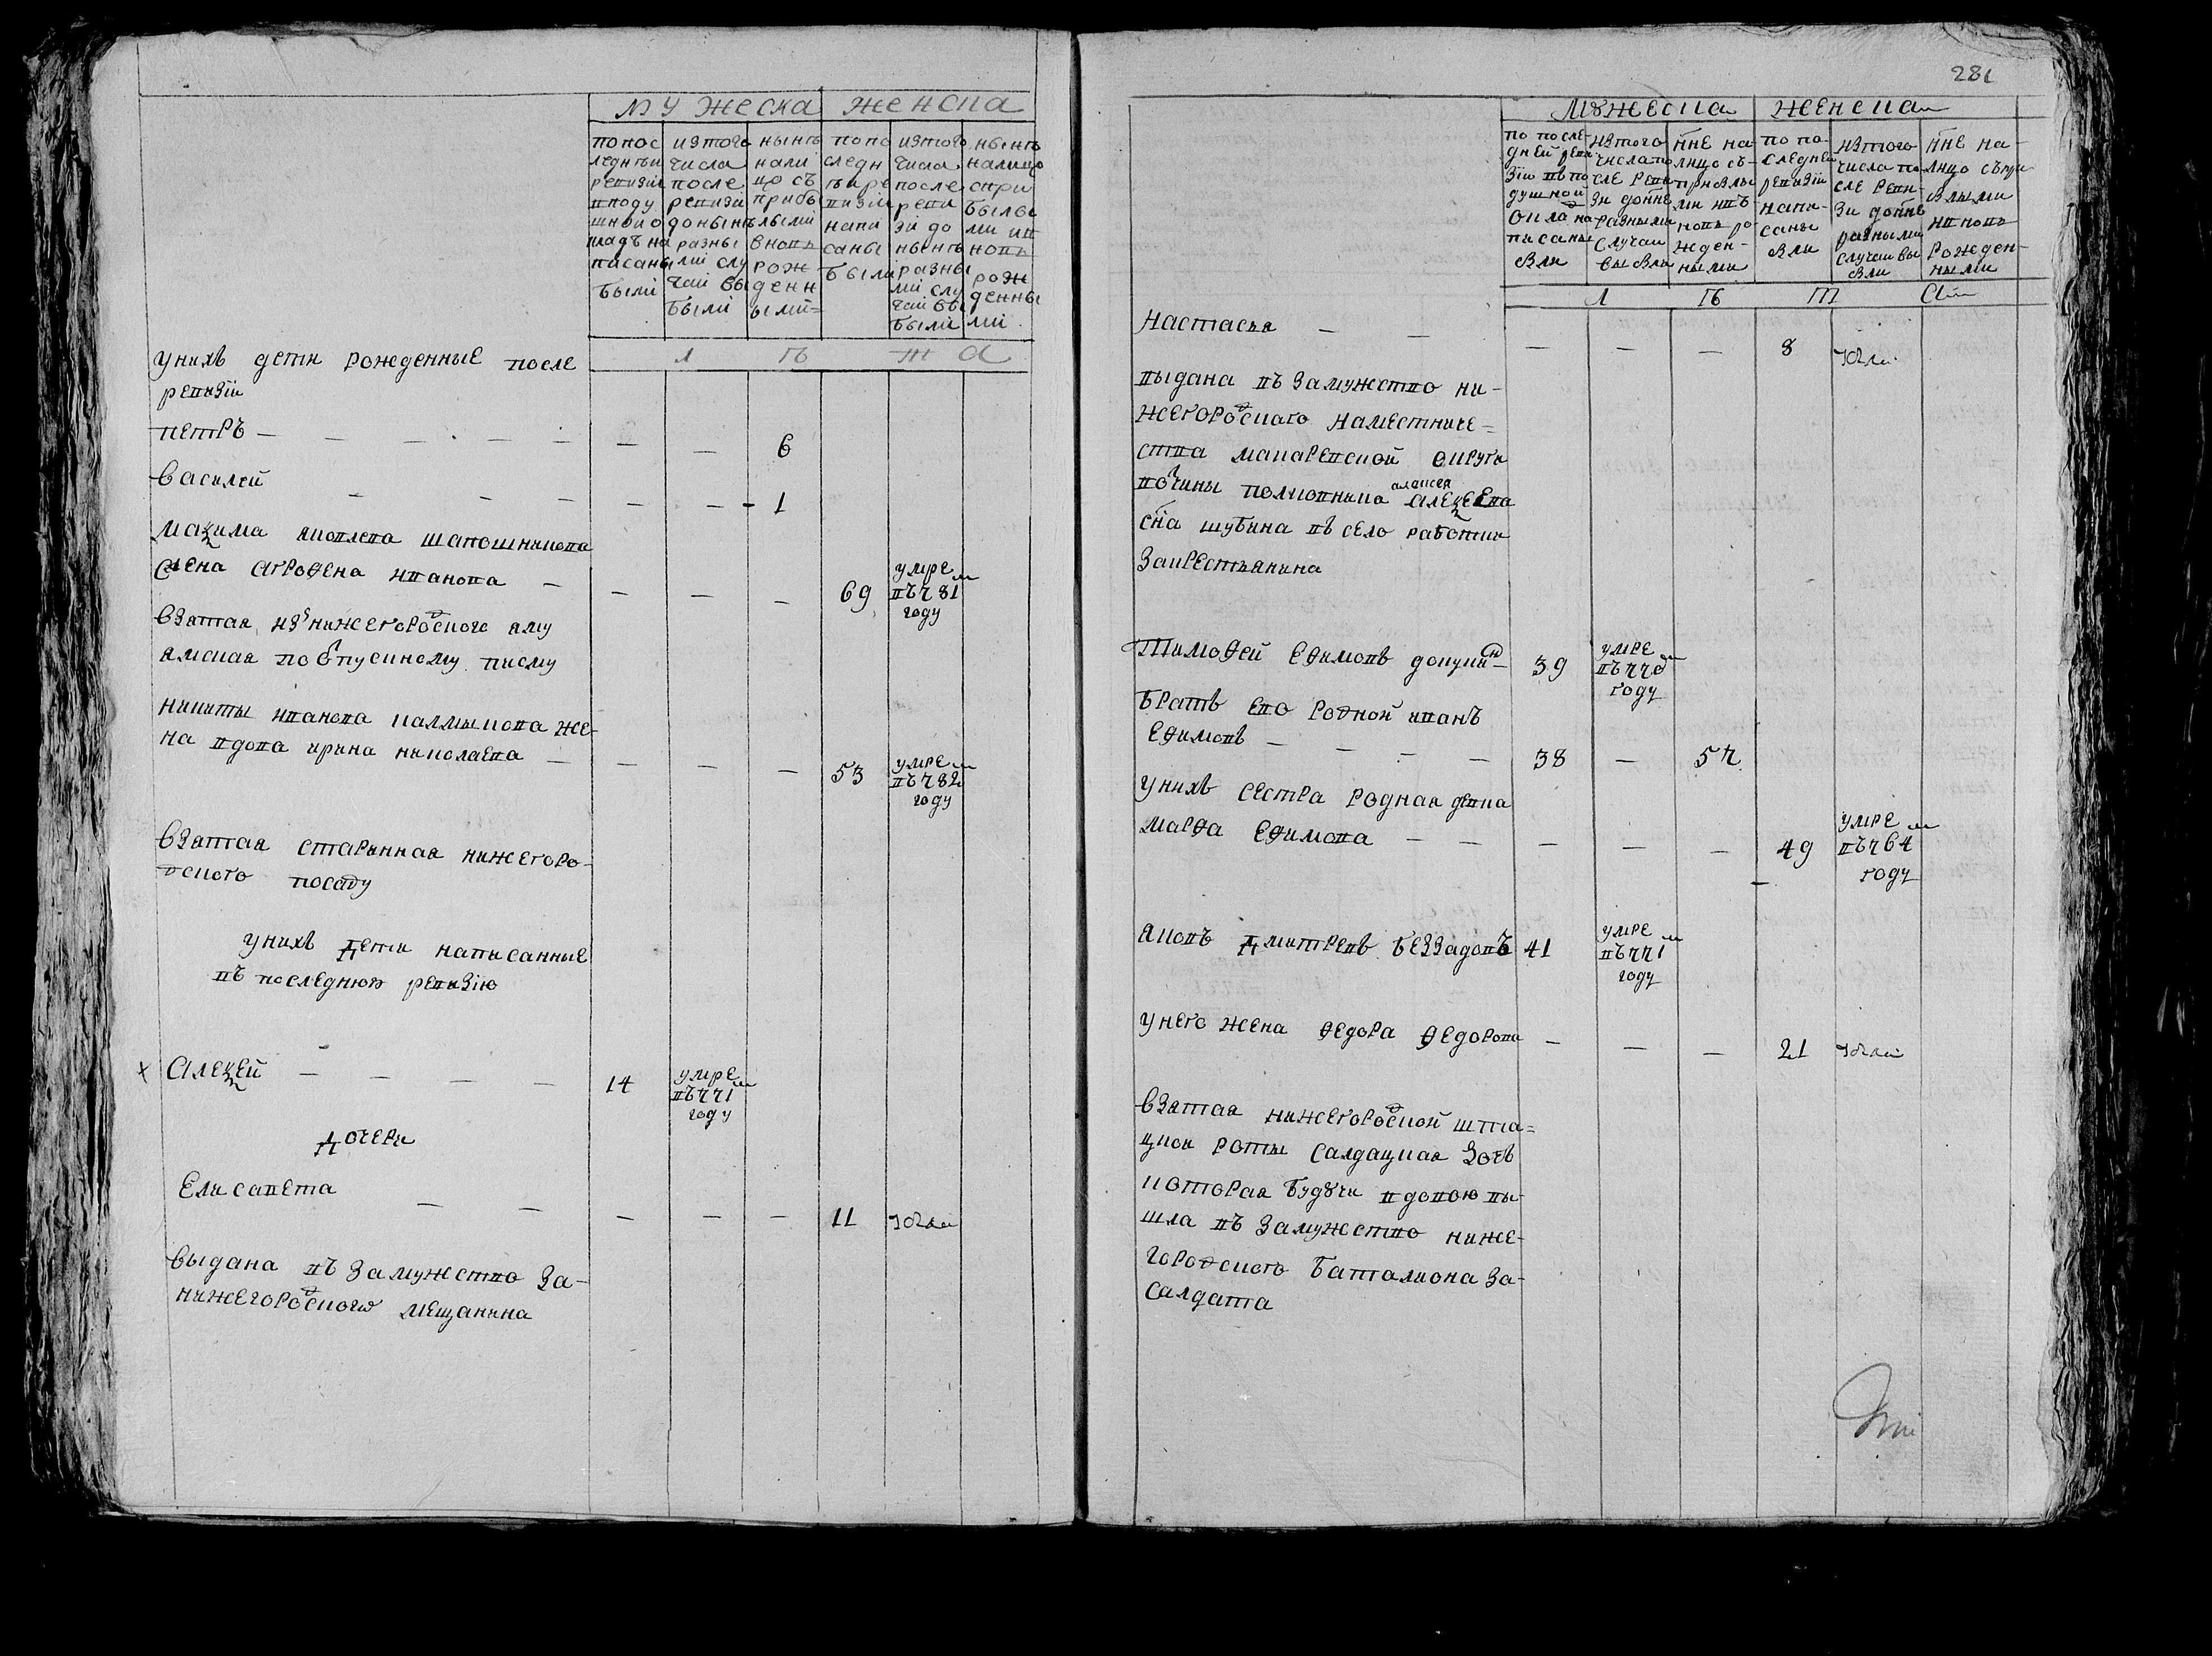 мужеска женска
попос
леднѣи
ревизіи
вподу
шномо
кладъ на
писаны
были
изтого
числа
после
ревизіи
донынѣ
разны
ми слу
чаи вы
были
нынѣ
нали
цо съ
прибы
лыми
вновь
рож
денн
ыми
попо
следн
ѣире
визіи
напи
саны
были
изтого
числа
после
реви
зіи до
нынѣ
разны
ми слу
чаи вы
были
нынѣ
налицо
спри
былы
ми ив
новь
рож
денны
ми
л ѣ т а
унихъ дети рожденные после
ревизіи
петръ — — — — — — — 6
василей — — — — — 1
мақима яковлева шапошникова
жена агрофена иванова — — — — 69 умре въ781м году
взятая изнижегородского яму
ямская по отпускному писму
никиты иванова калмыкова же-
на вдова ирина николаева — — — — 53 умре въ782м году
взятая старинная нижегоро-
дского посаду
унихъ дети написанные
въ последнюю ревизію
Алеқей — — — — 14 умре въ771м году
дочери
Елисавета — — — — — 11
выдана въ замужство за-
нижегородского мещанина
281
мужеска женска
по после-
дней реви
зіи въпо
душной
окладна
писаны
были
изтого
числапо
сле реви
зи донне
разными
случаи
выбыли
нне на
лицо съ-
прибылы
ми ивъ
новь ро-
жден-
ными
по по-
следней
ревизіи
напи-
саны
были
изтого
числа по
сле реви-
зи донне
разными
случаи вы
были
нне на-
лицо съпри
былыми
ивновь
рожден-
ными
л ѣ т а
настасья — — — — — 8
выдана въ замужство ни-
жегородскаго наместниче-
ства макаревской округи
вотчины полковника алексея алеқеева
сна шубина въ село работки
закрестьянина
Тимофей Ефимовъ докукин — 39 умре въ770м году
братъ ево родной иванъ
Ефимовъ — — — — 38 — 57
унихъ сестра родная девка
марфа Ефимова — — — — — 49 умре въ764м году
яковъ дмитревъ беззадовъ 41 умре въ771м году
унего жена федора федорова — — — 21
взятая нижегородской шта-
цкои роты салдацкая дочь
которая будучи вдовою вы-
шла въ замужство ниже-
городского баталиона за-
салдата